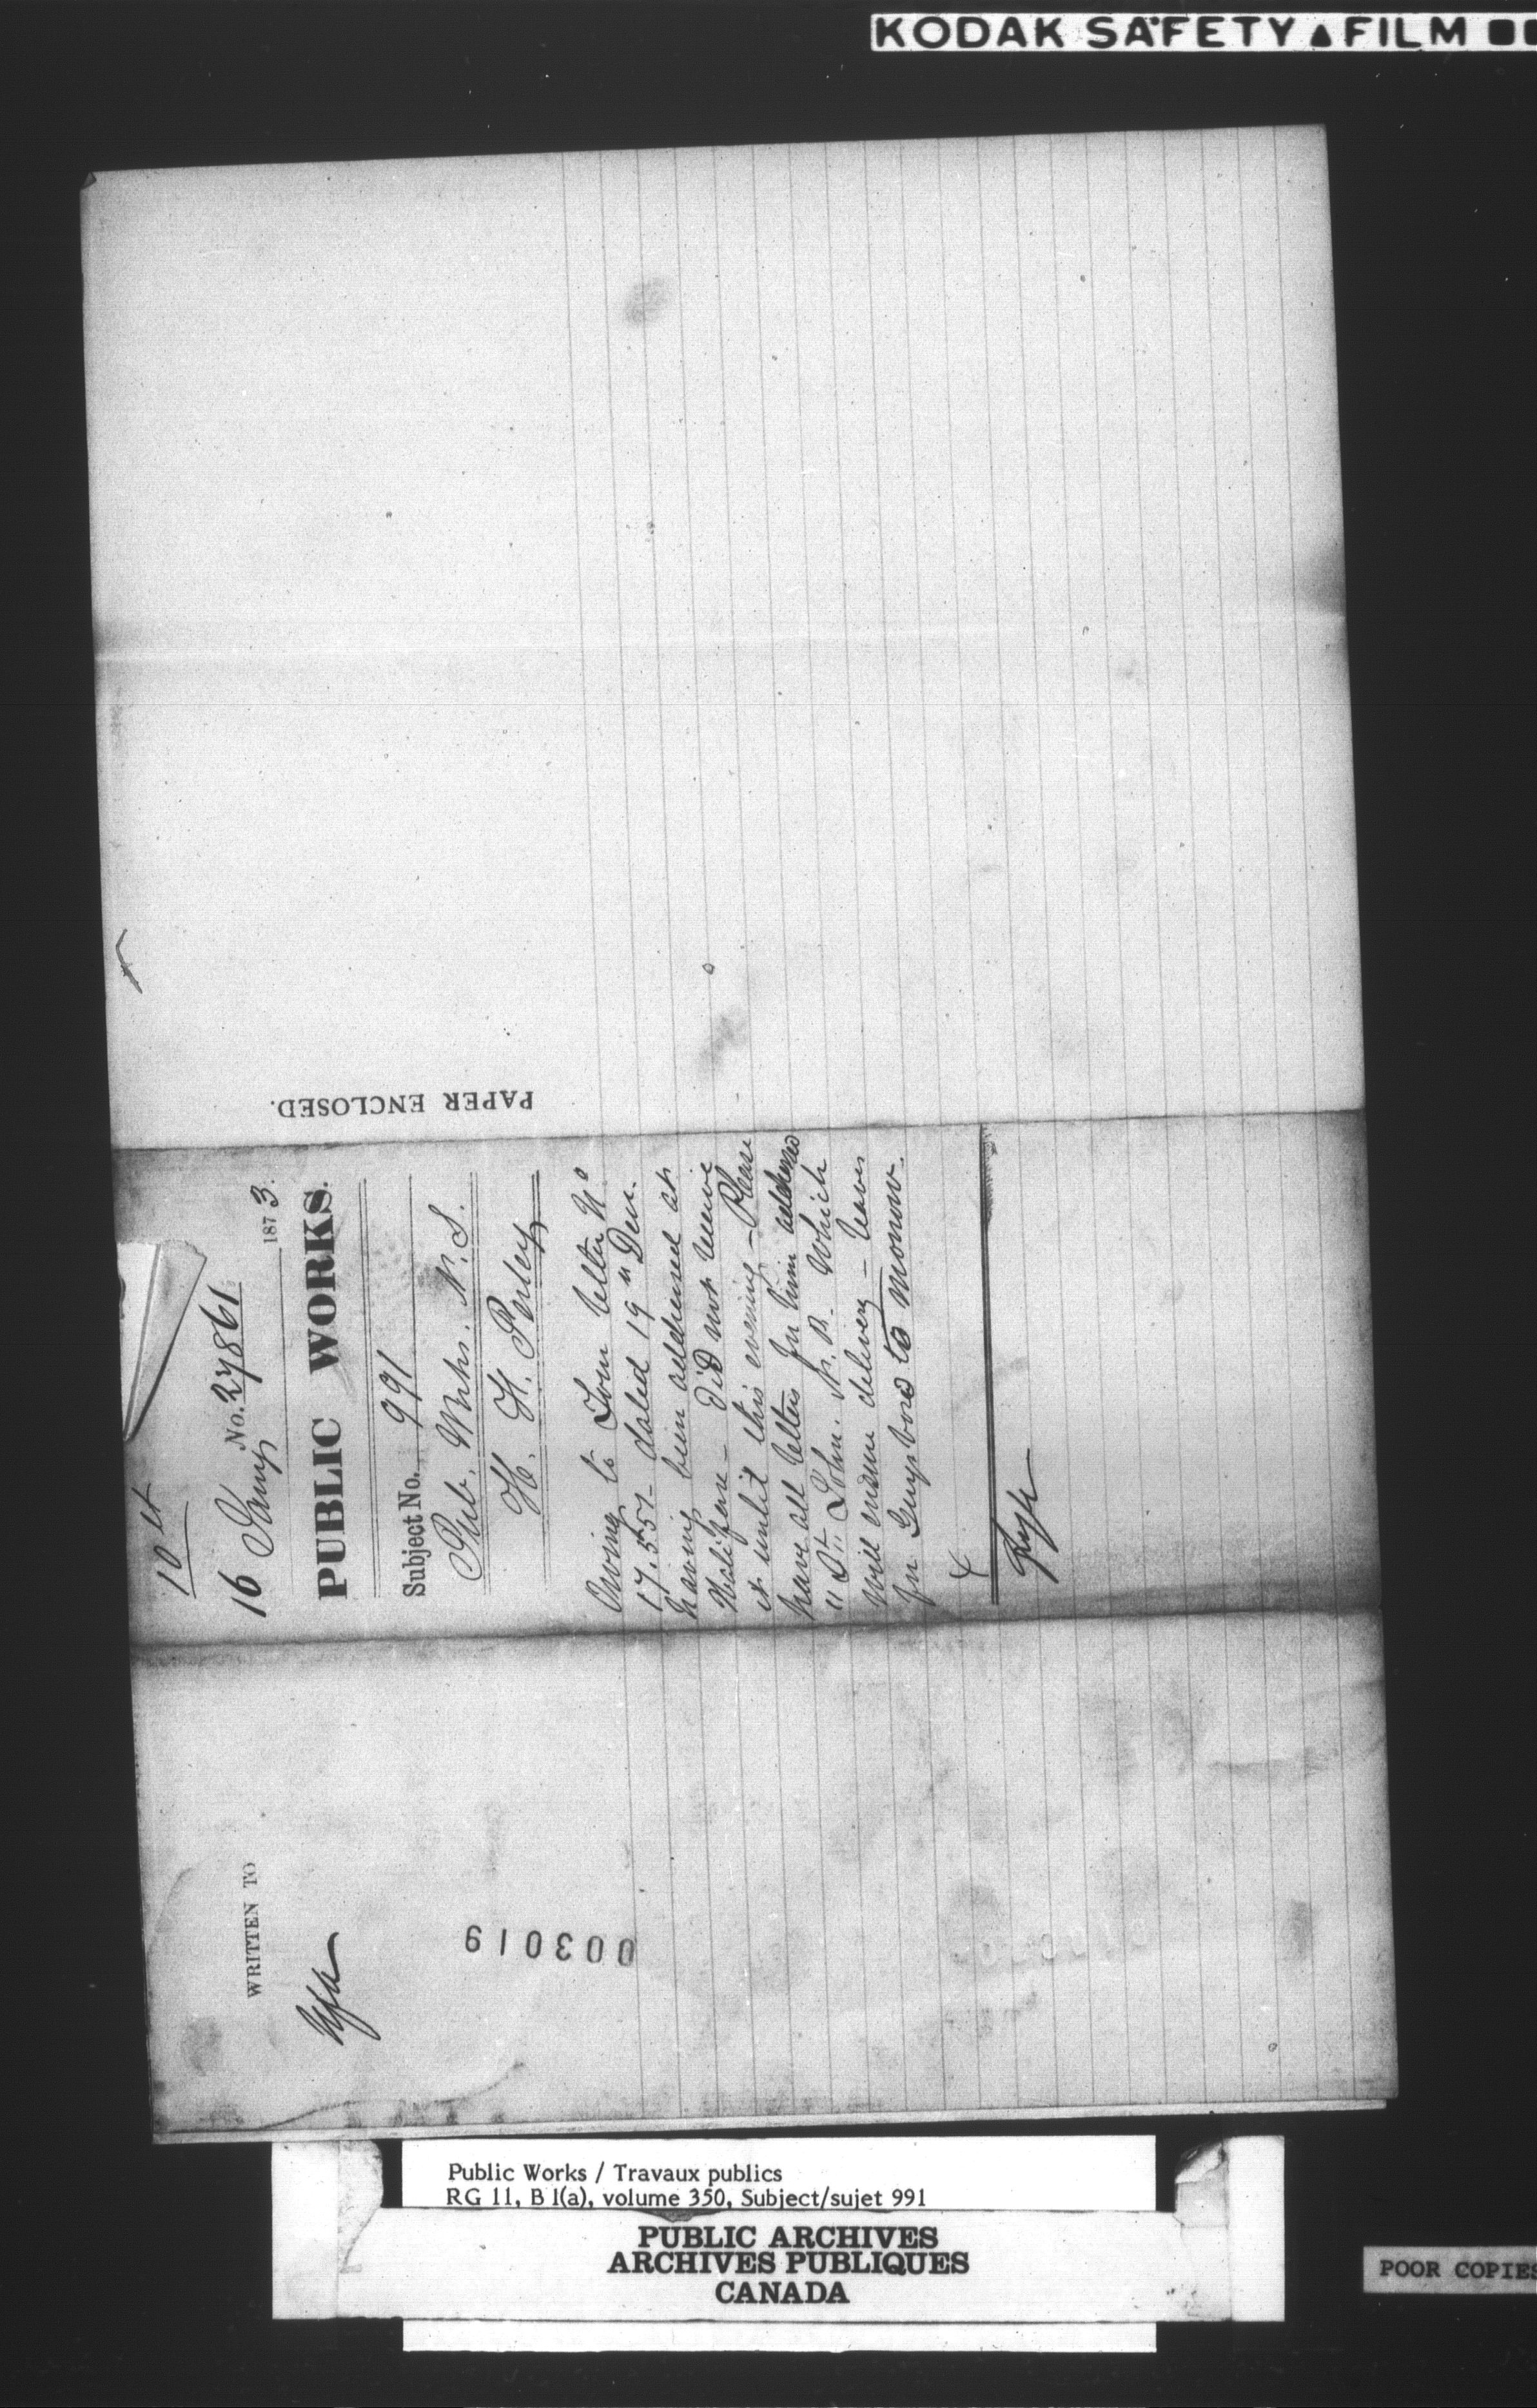 KODAK SAFETY FILM
10 ct
No. 27861
16 Jany 1873.
PUBLIC WORKS.
Subject No. 991
Pub. Wrks. N.S.
H. H. Perley
Owing to Your letter No
17.551 dated 19" Decr.
having been addressed at
Halifax – did not receive
it until this evening – Please
have all letters for him addressed
"St. John. N.B. Which
will ensure delivery – leaves
for Guysboro to morrow.
PAPER ENCLOSED.
WRITTEN TO
003019
Public Works / Travaux publics
RG 11, B 1(a), volume 350, Subject/sujet 991
PUBLIC ARCHIVES
ARCHIVES PUBLIQUES
CANADA
POOR COPIES